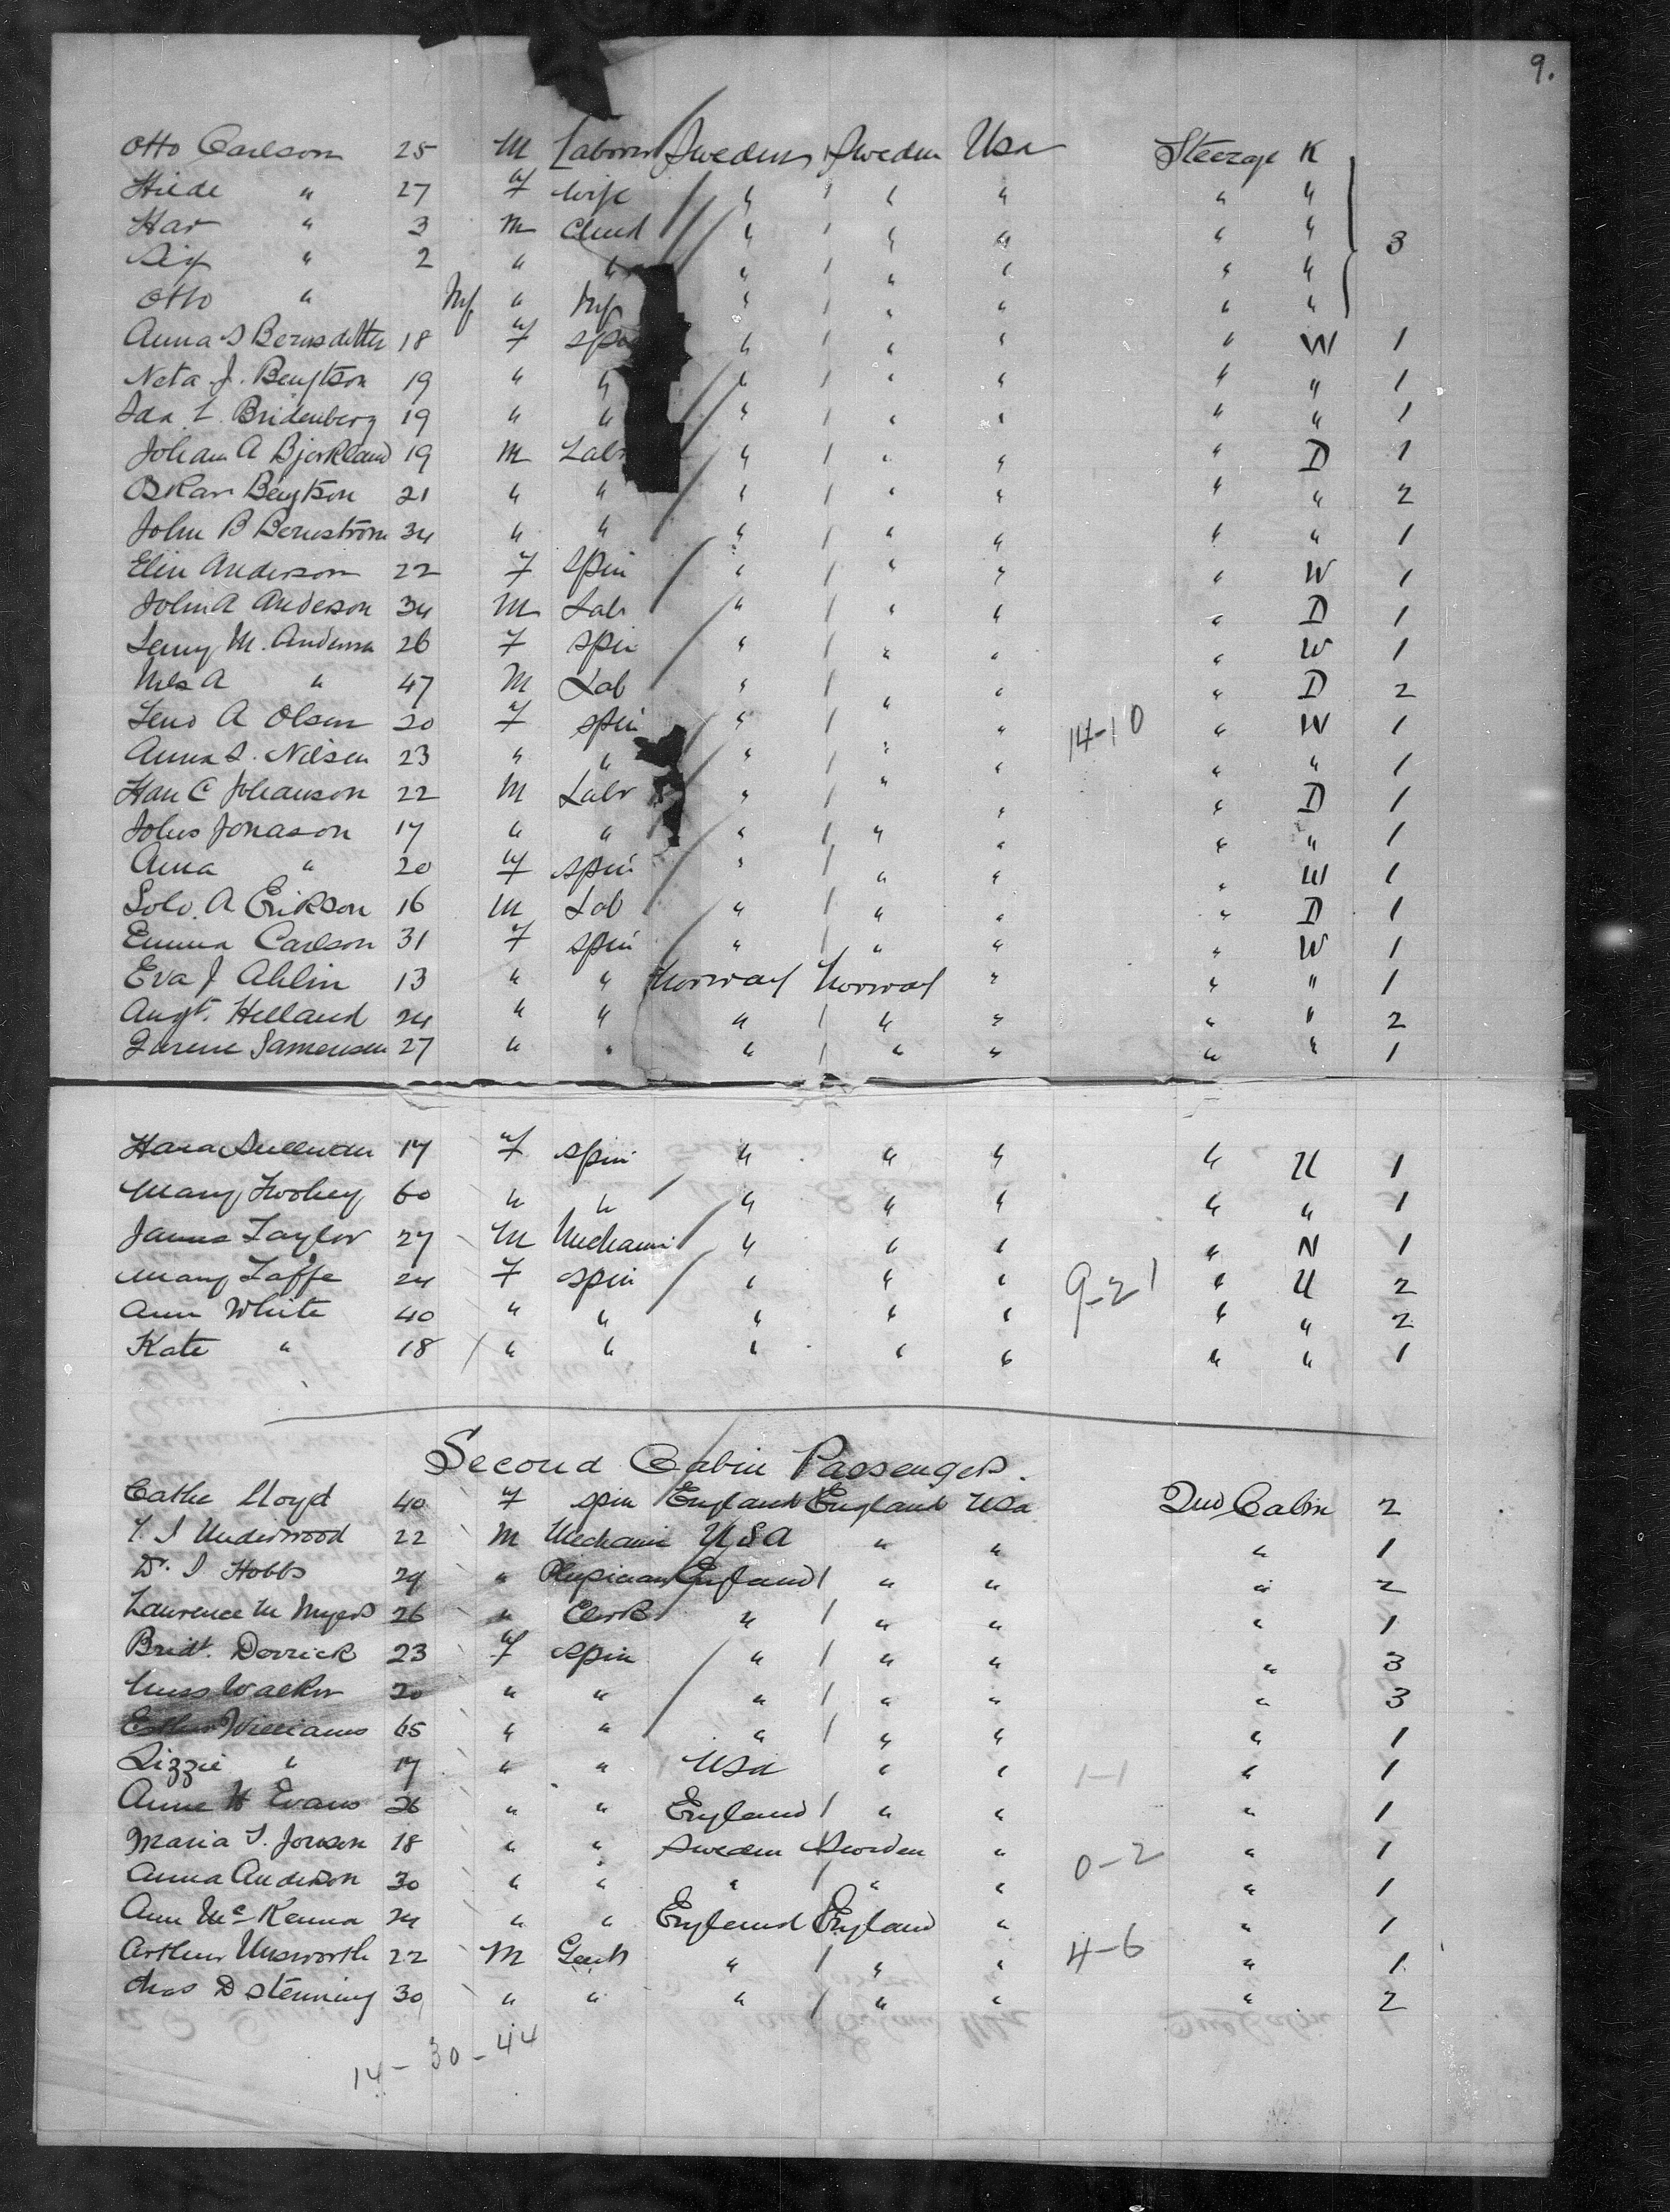 9.
Otto Carlson 25 M Laborer Sweden Sweden Usa Steerage K
Hilde " 27 F Wife " " " " "
Har " 3 M Child " " " " " 3
Sig " 2 " " " " " " "
Otto " Inf. " Inf " " " " "
Anna S 18 F Spin " " " " W 1
Neta J. Bengtson 19 " " " " " " " 1
Ida L. Bridenberg 19 " " " " " " " 1
Johan A Bjorkland 19 M Labr " " " " D 1
Oskar Bengtson 21 " " " " " " " 2
John B Bernstrom 34 " " " " " " " 1
Elin Anderson 22 F Spin " " " " W 1
John A Anderson 34 M Labr " " " " D 1
Jenny M. Anderson 26 F Spin " " " " W 1
Nils A " 47 M Lab " " " " D 2
A Olsen 20 F Spin " " " 14-10 " W 1
Anna S. Nilsen 23 " " " " " " " 1
Han C Johanson 22 M Labr " " " " D 1
Johs Jonason 17 " " " " " " " 1
Anna " 20 F Spin " " " " W 1
A Erikson 16 M Lab " " " " D 1
Emma Carlson 31 F Spin " " " " W 1
Eva J Ahlin 13 " " Norway Norway " " " 1
Augt. Helland 24 " " " " " " " 2
27 " " " " " " " 1
Hana Sullivan 17 F Spin " " " " U 1
Mary 60 " " " " " " " 1
James Taylor 27 M Mechanic " " " " N 1
Mary Taffe 24 F Spin " " " 9-21 " U 2
Ann White 40 " " " " " " " 2
Kate " 18 " " " " " " " 1
Second Cabin Passengers.
Cathe Lloyd 40 F Spin England England Usa 2nd Cabin 2
Underwood 22 M Mechanic USA " " " 1
Dr. I Hobbs 29 " Physician England " " " 2
Laurence M Myers 26 " Clerk " " " " 1
Bridt. Derrick 23 F Spin " " " " 3
Miss Walker 20 " " " " " " 3
Esther Williams 65 " " " " " " 1
Lizzie " 17 " " Usa " " 1-1 " 1
Anne H Evans 26 " " England " " " 1
Maria S. Jonson 18 " " Sweden Sweden " 0-2 " 1
Anna Anderson 30 " " " " " " 1
Ann McKenna 24 " " England England " " 1
Arthur Unsworth 22 M Gent " " " 4-6 " 1
Chas D Stenning 30 " " " " " " 2
14-30-44